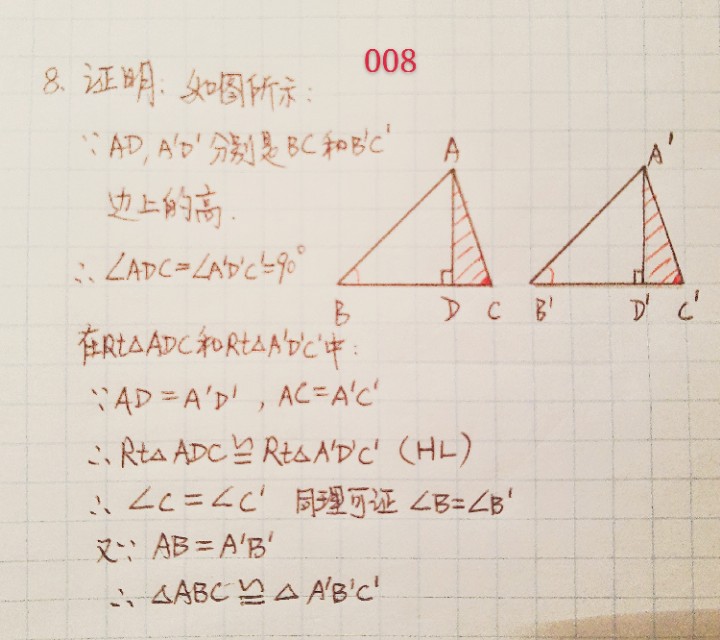 008
8. 证明: 如图所示:
∵ AD, A'D' 分别是 BC 和 B'C'
边上的高.
∴ ∠ADC=∠A'D'C'=90°
A
A'
B
D
C
B'
D'
C'
在Rt△ADC和Rt△A'D'C'中:
∵ AD = A'D' , AC = A'C'
∴ Rt△ADC ≌ Rt△A'D'C' (HL)
∴ ∠C = ∠C' 同理可证 ∠B=∠B'
又∵ AB = A'B'
∴ △ABC ≌ △A'B'C'